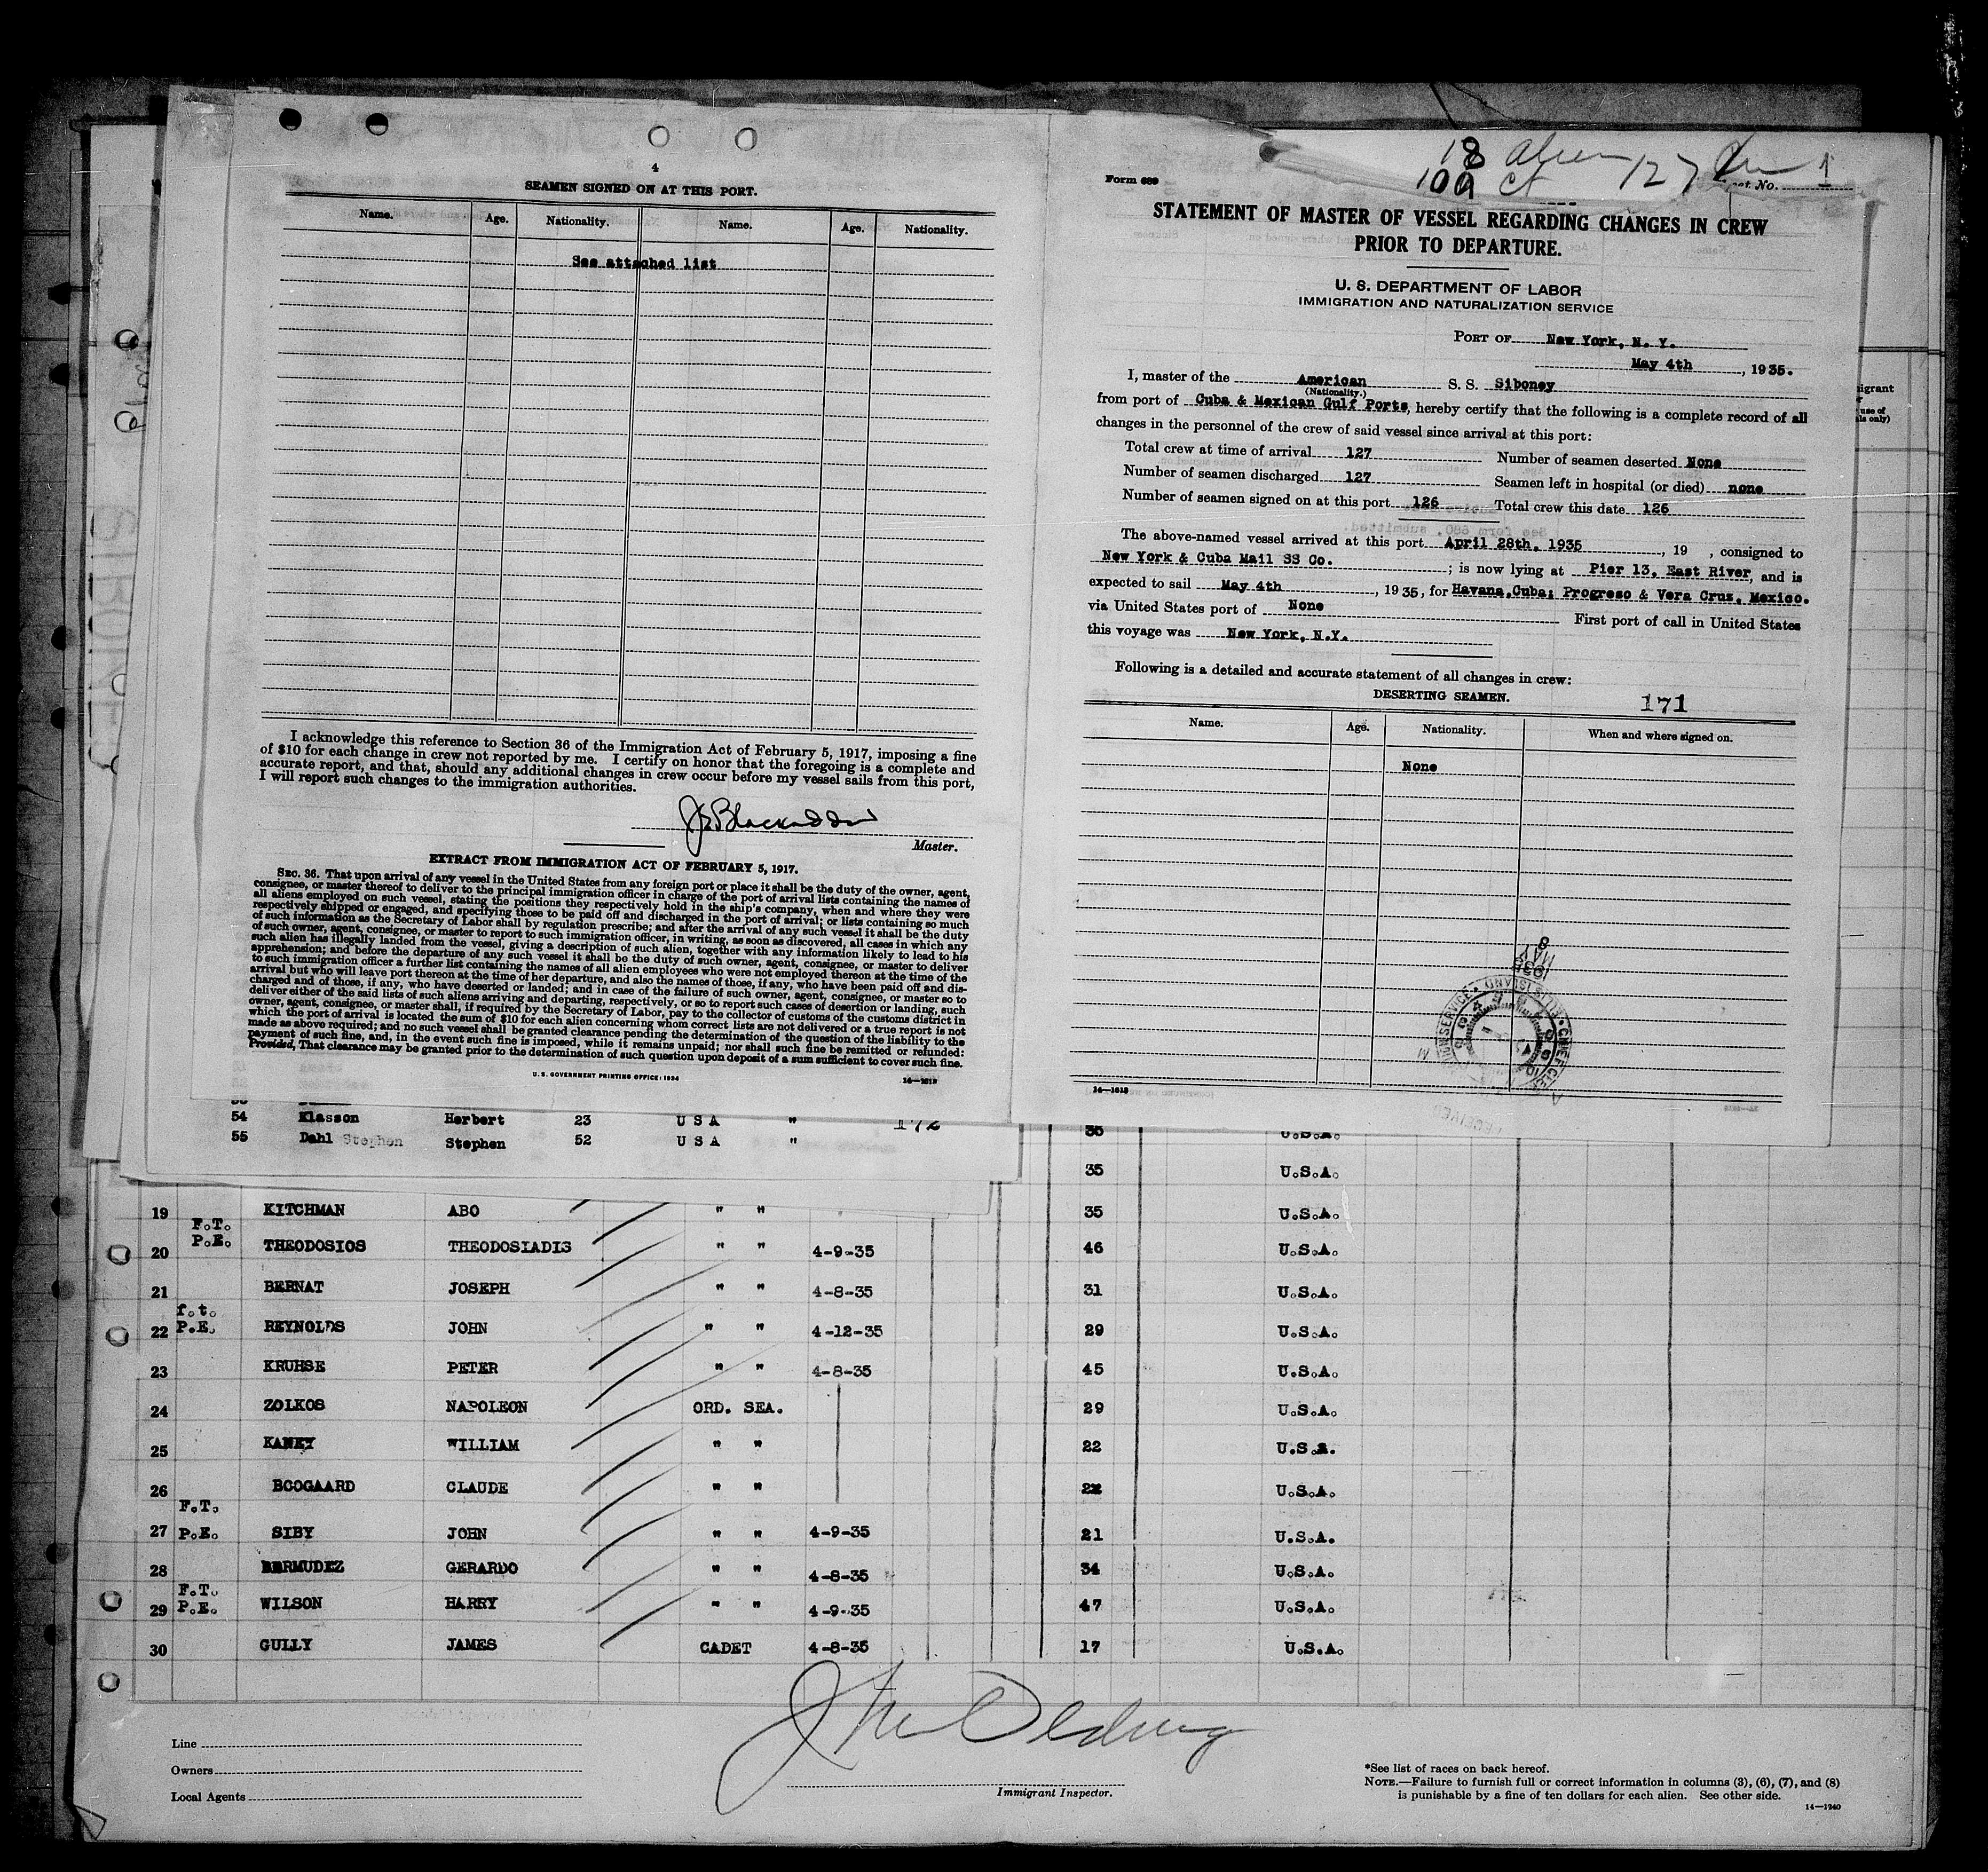 4
SEAMEN SIGNED ON AT THIS PORT.
Name. Age. Nationality. Name. Age. Nationality.
See attached list
I acknowledge this reference to Section 36 of the Immigration Act of February 5, 1917, imposing a fine
of $10 for each change in crew not reported by me. I certify on honor that the foregoing is a complete and
accurate report, and that, should any additional changes in crew occur before my vessel sails from this port,
I will report such changes to the immigration authorities.
Master.
EXTRACT FROM IMMIGRATION ACT OF FEBRUARY 5, 1917.
SEC. 36. That upon arrival of any vessel in the United States from any foreign port or place it shall be the duty of the owner, agent,
consignee, or master thereof to deliver to the principal immigration officer in charge of the port of arrival lists containing the names of
all aliens employed on such vessel, stating the positions they respectively hold in the ship's company, when and where they were
respectively shipped or engaged, and specifying those to be paid off and discharged in the port of arrival; or lists containing so much
of such information as the Secretary of Labor shall by regulation prescribe; and after the arrival of any such vessel it shall be the duty
of such owner, agent, consignee, or master to report to such immigration officer, in writing, as soon as discovered, all cases in which any
such alien has illegally landed from the vessel, giving a description of such alien, together with any information likely to lead to his
apprehension; and before the departure of any such vessel it shall be the duty of such owner, agent, consignee, or master to deliver
to such immigration officer a further list containing the names of all alien employees who were not employed thereon at the time of the
arrival but who will leave port thereon at the time of her departure, and also the names of those, if any, who have been paid off and dis-
charged and of those, if any, who have deserted or landed; and in case of the failure of such owner, agent, consignee, or master so to
deliver either of the said lists of such aliens arriving and departing, respectively, or so to report such cases of desertion or landing, such
owner, agent, consignee, or master shall, if required by the Secretary of Labor, pay to the collector of customs of the customs district in
which the port of arrival is located the sum of $10 for each alien concerning whom correct lists are not delivered or a true report is not
made as above required; and no such vessel shall be granted clearance pending the determination of the question of the liability to the
payment of such fine, and, in the event such fine is imposed, while it remains unpaid; nor shall such fine be remitted or refunded:
Provided, That clearance may be granted prior to the determination of such question upon deposit of a sum sufficient to cover such fine.
U. S. GOVERNMENT PRINTING OFFICE: 1934 14—1613
18 127 1
109
Form 689 No.
STATEMENT OF MASTER OF VESSEL REGARDING CHANGES IN CREW
PRIOR TO DEPARTURE.
U. S. DEPARTMENT OF LABOR
IMMIGRATION AND NATURALIZATION SERVICE
PORT OF New York, N. Y.
May 4th, 1935.
I, master of the American S. S. Siboney
(Nationality.)
from port of Cuba & Mexican Gulf Ports, hereby certify that the following is a complete record of all
changes in the personnel of the crew of said vessel since arrival at this port:
Total crew at time of arrival 127 Number of seamen deserted None
Number of seamen discharged 127 Seamen left in hospital (or died) none
Number of seamen signed on at this port 126 Total crew this date 126
The above-named vessel arrived at this port April 28th, 1935, 19 , consigned to
New York & Cuba Mail SS Co. ; is now lying at Pier 13, East River, and is
expected to sail May 4th, 1935, for Havana, Cuba; Progreso & Vera Cruz, Mexico.
via United States port of None First port of call in United States
this voyage was New York, N.Y.
Following is a detailed and accurate statement of all changes in crew:
DESERTING SEAMEN. 171
Name. Age. Nationality. When and where signed on.
None
14—1613
54 Klasson Herbert 23 U S A " 172
55 Dahl Stephen Stephen 52 U S A "
U.S.A.
35 U.S.A.
19 KITCHMAN ABO " " 35 U.S.A.
F.T.
P.E.
20 THEODOSIOS THEODOSIADIS " " 4-9-35 46 U.S.A.
21 BERNAT JOSEPH " " 4-8-35 31 U.S.A.
f.t.
22 P.E. REYNOLDS JOHN " " 4-12-35 29 U.S.A.
23 KRUHSE PETER " " 4-8-35 45 U.S.A.
24 ZOLKOS NAPOLEON ORD. SEA. 29 U.S.A.
25 KANEY WILLIAM " " 22 U.S.A.
26 BOOGAARD CLAUDE " " U.S.A.
F.T.
27 P.E. SIBY JOHN " " 4-9-35 21 U.S.A.
28 BERMUDEZ GERARDO " " 4-8-35 34 U.S.A.
F.T.
29 P.E. WILSON HARRY " " 4-9-35 47 U.S.A.
30 GULLY JAMES CADET 4-8-35 17 U.S.A.
Line
Owners
Local Agents
Immigrant Inspector.
*See list of races on back hereof.
NOTE.—Failure to furnish full or correct information in columns (3), (6), (7), and (8)
is punishable by a fine of ten dollars for each alien. See other side.
14—1240